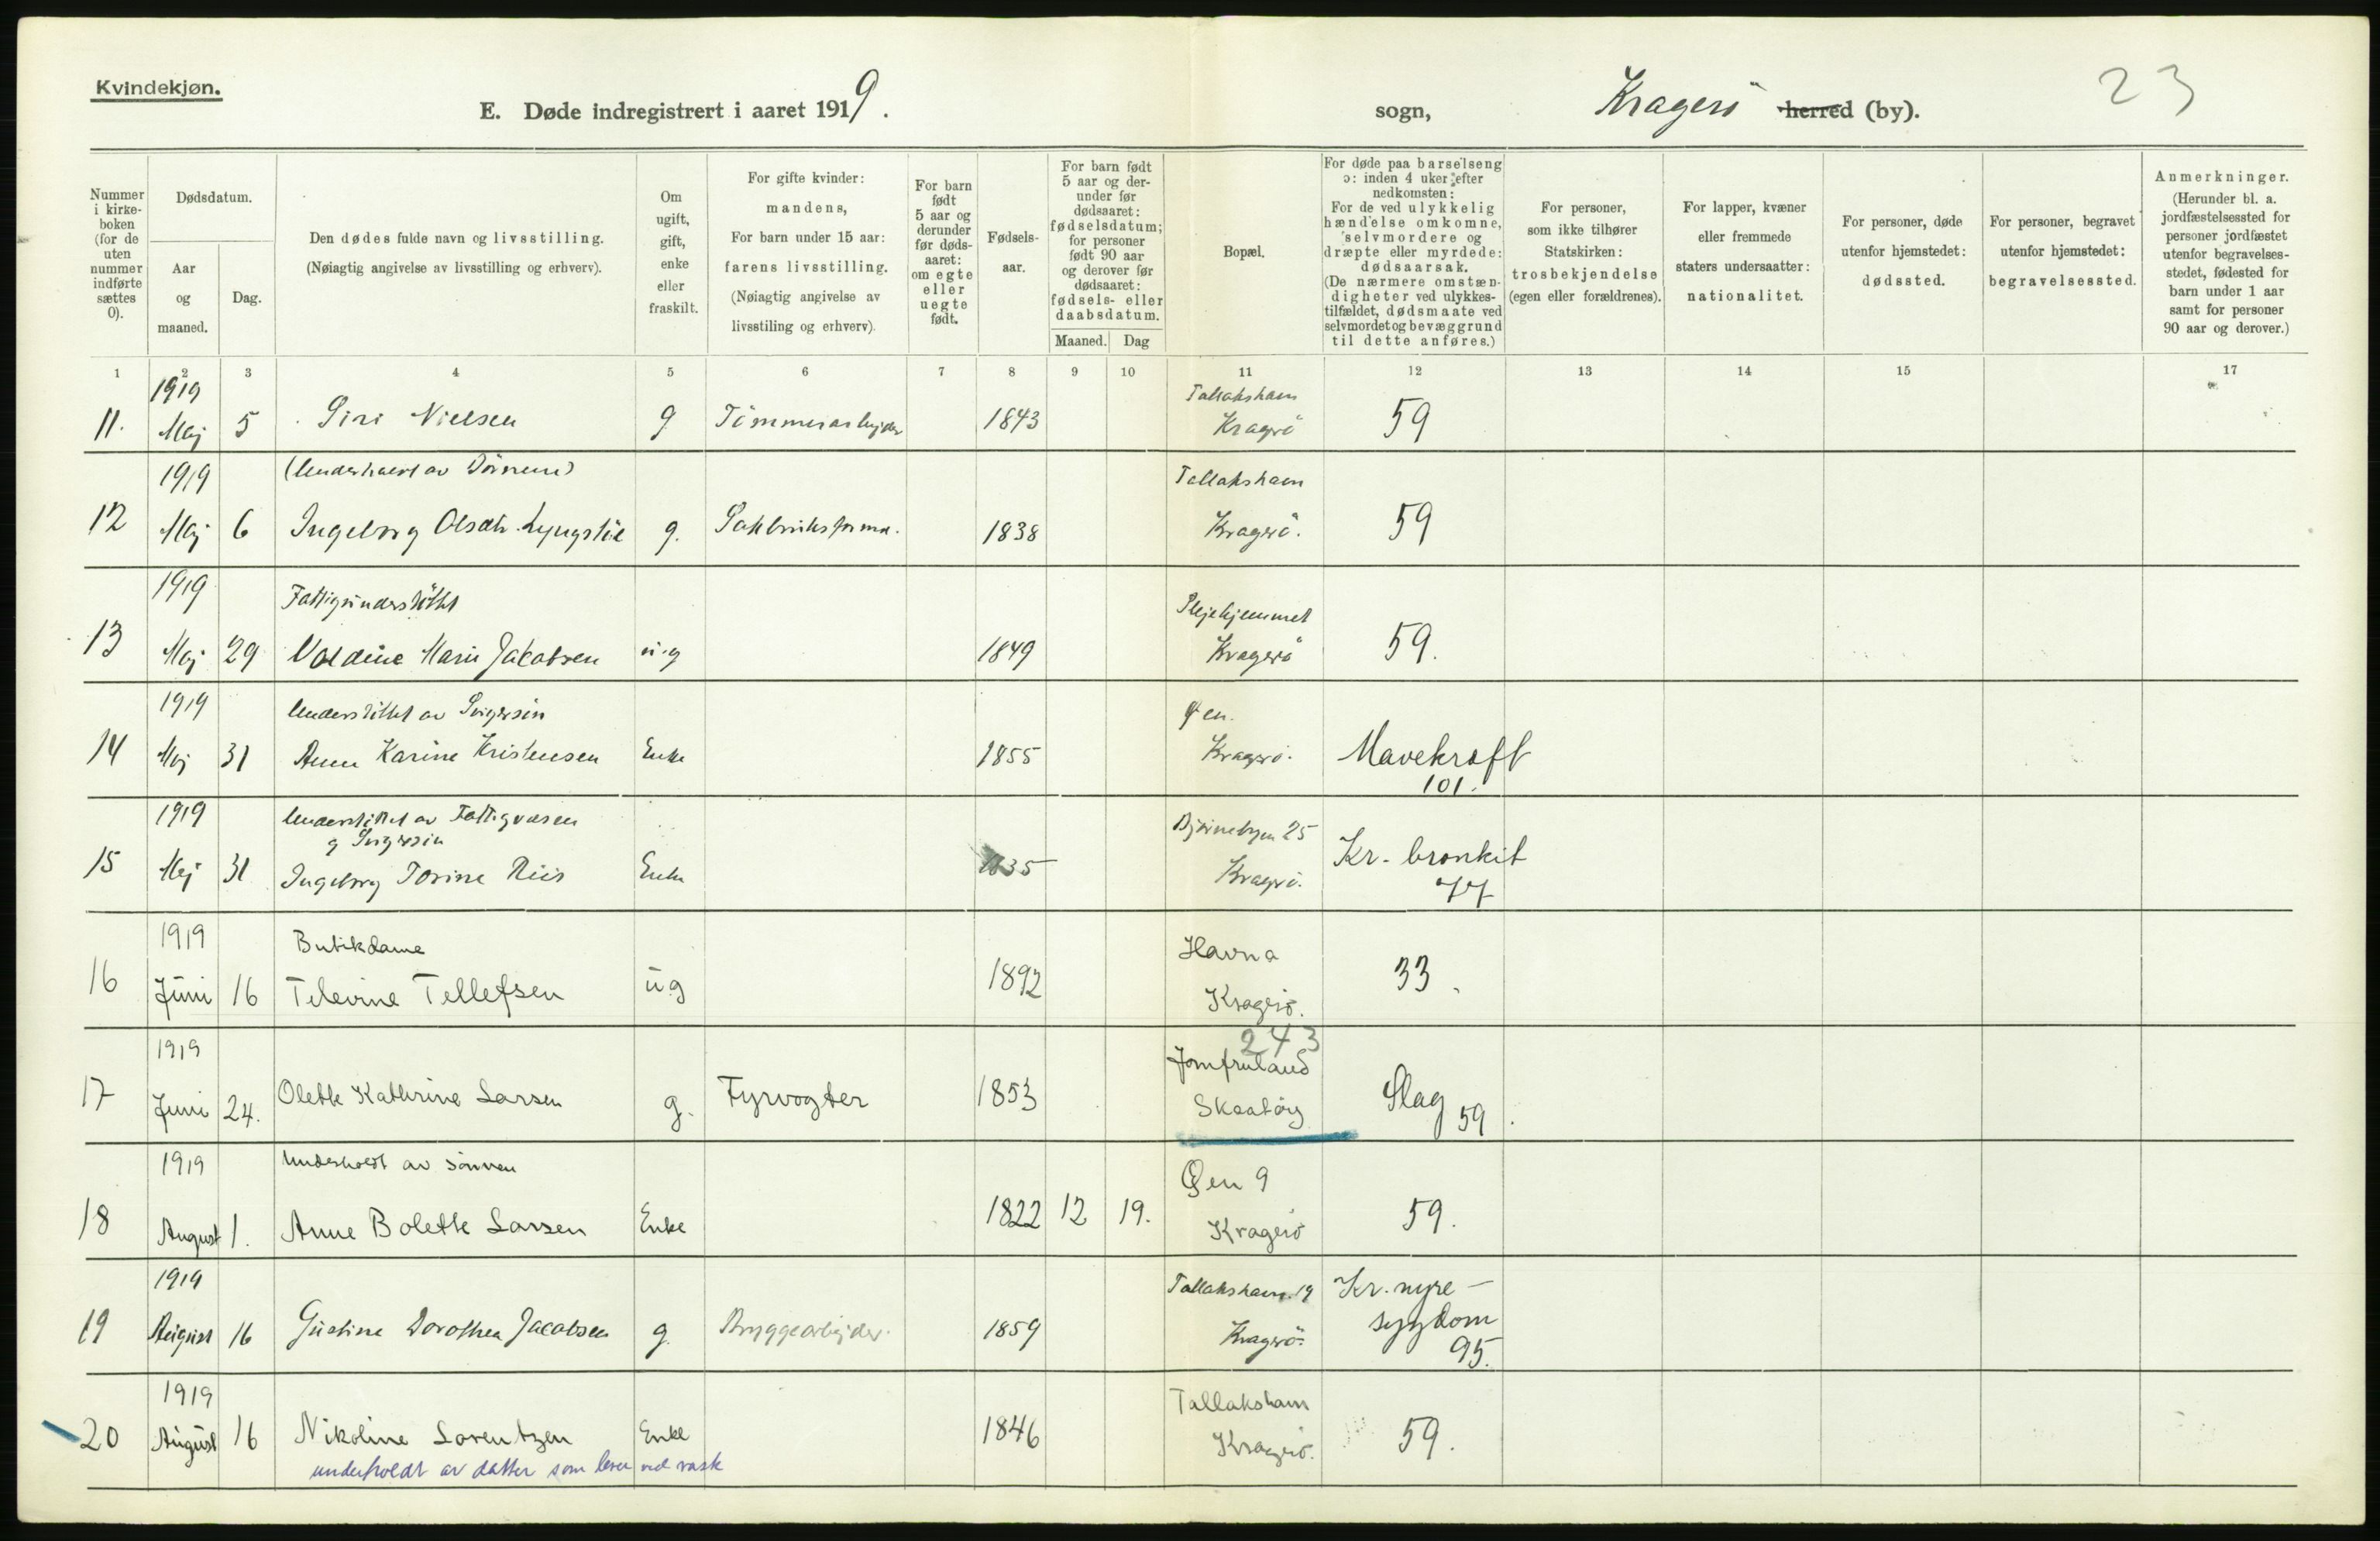 Kvindekjøn.
E. Døde indregistrert i aaret 1919. sogn, Kragerö herred (by). 23
Nummer i kirke-boken (for de uten nummer indførte sættes 0).
Dødsdatum.
Aar og maaned.
Dag.
Den dødes fulde navn og livsstilling.
(Nøiagtig angivelse av livsstilling og erhverv).
Om ugift, gift, enke eller fraskilt.
For gifte kvinder: mandens,
For barn under 15 aar: farens livsstilling.
(Nøiagtig angivelse av livsstiling og erhverv).
For barn født 5 aar og derunder før døds-aaret: om egte eller uegte født.
Fødsels-aar.
For barn født 5 aar og der-under før dødsaaret: fødselsdatum; for personer født 90 aar og derover før dødsaaret: fødsels- eller daabsdatum.
Maaned. Dag
Bopæl.
For døde paa barselseng ɔ: inden 4 uker efter nedkomsten:
For de ved ulykkelig hændelse omkomne, selvmordere og dræpte eller myrdede: dødsaarsak.
(De nærmere omstæn-digheter ved ulykkes-tilfældet, dødsmaate ved selvmordet og bevæggrund til dette anføres.)
For personer, som ikke tilhører Statskirken: trosbekjendelse (egen eller forældrenes).
For lapper, kvæner eller fremmede staters undersaatter: nationalitet.
For personer, døde utenfor hjemstedet: dødssted.
For personer, begravet utenfor hjemstedet: begravelsessted.
Anmerkninger.
(Herunder bl. a. jordfæstelsessted for personer jordfæstet utenfor begravelses-stedet, fødested for barn under 1 aar samt for personer 90 aar og derover.)
1 2 3 4 5 6 7 8 9 10 11 12 13 14 15 17
1919 Tallakshavn
11. Maj 5 Siri Nielsen g Tömmerarbejder 1843 Kragerö 59
1919 (Underholdt av Sönnen) Tallakshavn
12 Maj 6 Ingeborg Olsdtr. Lyngstöl g. 1838 Kragerö. 59
1919 Fattigunderstöttet Plejehjemmet
13 Maj 29 Valdine Marie Jacobsen ug 1849 Kragerö 59.
1919 Understöttet av Øen.
14 Maj 31 Anne Karine Kristensen Enke 1855 Kragerö. Mavekræft
101.
1919 Understöttet av Fattigvæsen Björnebyen 25
15 Maj 31 Ingeborg Torine Riis Enke 1835 Kragerö. Kr. bronkit
77
1919 Butikdame Havna
16 Juni 16 Televine Tellefsen ug 1892 Kragerö. 33.
1919 243
Jomfruland
17 Juni 24. Olette Kathrine Larsen g. Fyrvogter 1853 Skaatöy Slag 59.
1919 Underholdt av sönnen Øen 9
18 August 1. Anne Bolette Larsen Enke 1822 12 19. Kragerö 59.
1919 Tallakshavn 19 Kr. nyre-
19 August 16 Gustine Dorothea Jacobsen g. Bryggearbejder. 1859 Kragerö. sygdom
95.
1919 Tallakshavn
20 August 16 Nikoline Lorentzen Enke 1846 Kragerö. 59.
underholdt av datter som lever ved vask